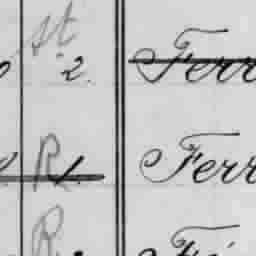 st
2. Ferr
R 1. Ferr
R